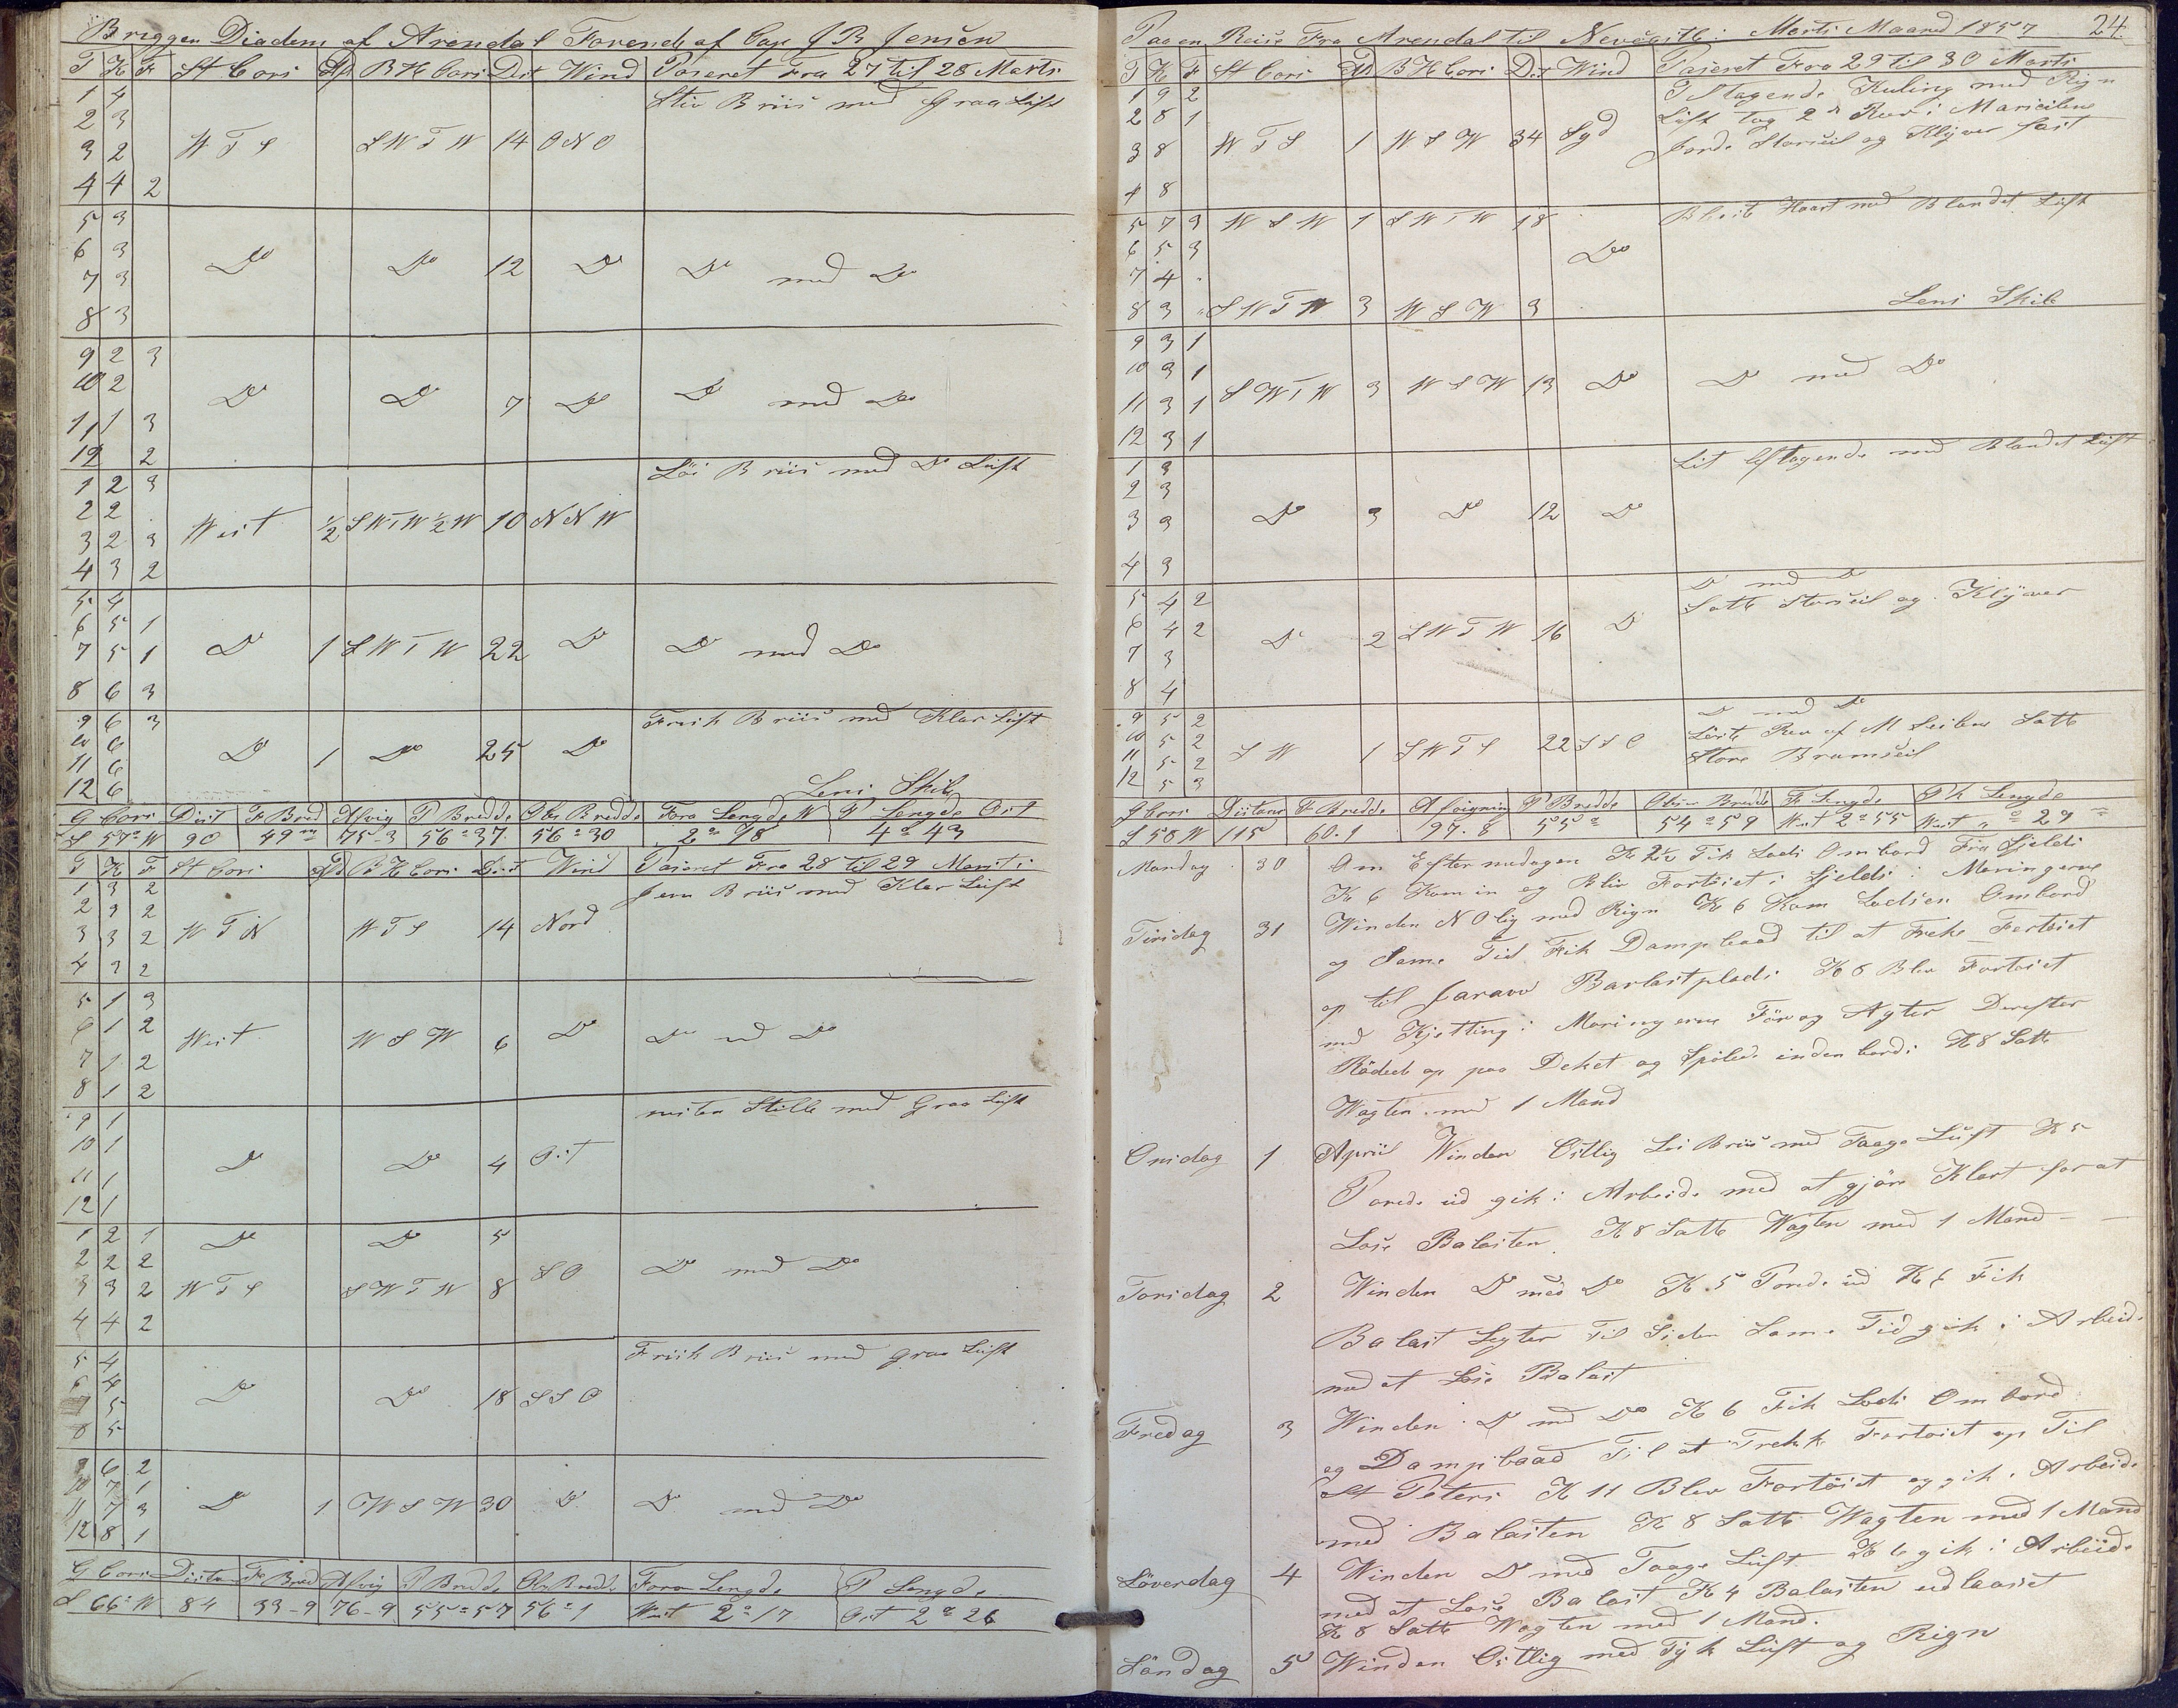 Briggen Diadem af Arendal Førende af Cap J B Jensen
T K F St Cors Afd B H Cors Dist Wind Paseret Fra 27 til 28 Marts
1 4 Stiv Briis med Graa Luft
2 3
3 2 W T S S W T W 14 O N O
4 4 2
5 3
6 3
7 3 Do Do 12 Do Do med Do
8 3
9 2 3
10 2 Do Do 7 Do Do med Do
11 1 3
12 2
1 2 3 Löi Briis med Do Luft
2 2
3 2 3 West ½ S W T W ½ W 10 N N W
4 3 2
5 4
6 5 1
7 5 1 Do 1 S W T W 22 Do Do med Do
8 6 3
9 6 3 Frisk Briis med Klar Luft
10 6
11 6 Do 1 Do 25 Do
12 6 Lens Skib
G Cors Dist F Bred Afvig P Bredde Obs Bredde Fora Lengde W P Lengde Ost
S 57° W 90 49 m 75-3 56°37 56°30 2°18 4°43
T K F St Cors Afd B H Cors Dist Wind Paseret Fra 28 til 29 Marts
1 3 2 Jevn Briis med Klar Luft
2 3 2
3 3 2 W T N W T S 14 Nord
4 3 2
5 1 3
6 1 2 West W S W 6 Do Do med Do
7 1 2
8 1 2
9 1 nesten Stille med Graa Luft
10 1 Do Do 4 Ost
11 1
12 1
1 2 1 Do Do 5
2 2 2 S O Do med Do
3 3 2 W T S S W T W 8
4 4 2
5 4 Frisk Briis med graa Luft
6 4 Do Do 18 S S O
7 5
8 5
9 6 2
10 7 1
11 7 3 Do 1 W S W 30 Do Do med Do
12 8 1
G Cors Distan F Bred Afvig P Bredde Obs Bredde Fora Lengde P Lengde
S 66° W 84 33-9 76-9 55°57 56°1 West 2°17 Ost 2°26
Paa en Reise Fra Arendal til Newcastle i Marts Maaned 1857 24
T K F St Cors Afd B H Cors Dist Wind Paseret Fra 29 til 30 Marts
1 9 2 Tiltagende Kuling med Rign
2 8 1 Luft tog 2 Rev i Marseilene
3 8 W T S 1 W S W 34 Syd Jorde Storseil og Klyver fast
4 8
5 7 3 W S W 1 S W T W 18 Bleste Haart med Blandet Luft
6 5 3 Do
7 4
8 3 S W T W 3 W S W 3 Lens Skib
9 3 1
10 3 1
11 3 1 S W T W 3 W S W 13 Do Do med Do
12 3 1
1 3 Lit aftagende med Blandet Luft
2 3
3 3 Do 3 Do 12 Do
4 3
5 4 2 Do med Do
6 4 2 Do 2 S W T W 16 Do Satte Storseil og Klyver
7 3
8 4
9 5 2 Do med Do
10 5 2 Löste Rev af M Seilene Satte
11 5 2 S W 1 S W T S 22 S S O Store Bramseil
12 5 3
G Cors Distans F Bredde Afvigning P Bredde Obs Bredde F Lengde P Lengde
S 58 W 115 60.1 97.8 55° 54°59 West 2°55 West "°29
Mandag 30 Om Eftermedagen K 2½ Fik Lods Ombord Fra Sjelds
K 6 Kom in og Blev Fortöiet i Sjelds i Moringerne
Tirsdag 31 Winden N O lig med Rign K 6 Kom Lodsen Ombord
og Same Tid Fik Dampbaad til at Treke Fartöiet
op til Jaravv Barlastplads K 8 Blev Fortöiet
med Kjetting i Moringerne För og Agter Derefter
Rödede op paa Deket og Spölede indenbords K 8 Satte
Wagten med 1 Mand
Onsdag 1 April Winden Ostlig Löi Briis med Taage Luft K 5
Porede ud gik i Arbeide med at gjöre Klart for at
Lose Balasten K 8 Satte Wagten med 1 Mand
Torsdag 2 Winden Do med Do K 5 Porede ud K 6 Fik
Balast Legter Til Siden Same Tid gik i Arbeide
med at Lose Balast
Fredag 3 Winden Do med Do K 6 Fik Lods Ombord
og Dampbaad Til at Trekke Fartöiet op Til
St Peters K 11 Blev Fortöiet og gik i Arbeide
med Balasten K 8 Satte Wagten med 1 Mand
Löverdag 4 Winden Do med Taage Luft K 6 gik i Arbeide
med at Lose Balast K 4 Balasten udlosset
K 8 Satte Wagten med 1 Mand.
Söndag 5 Winden Ostlig med Tyk Luft og Rign